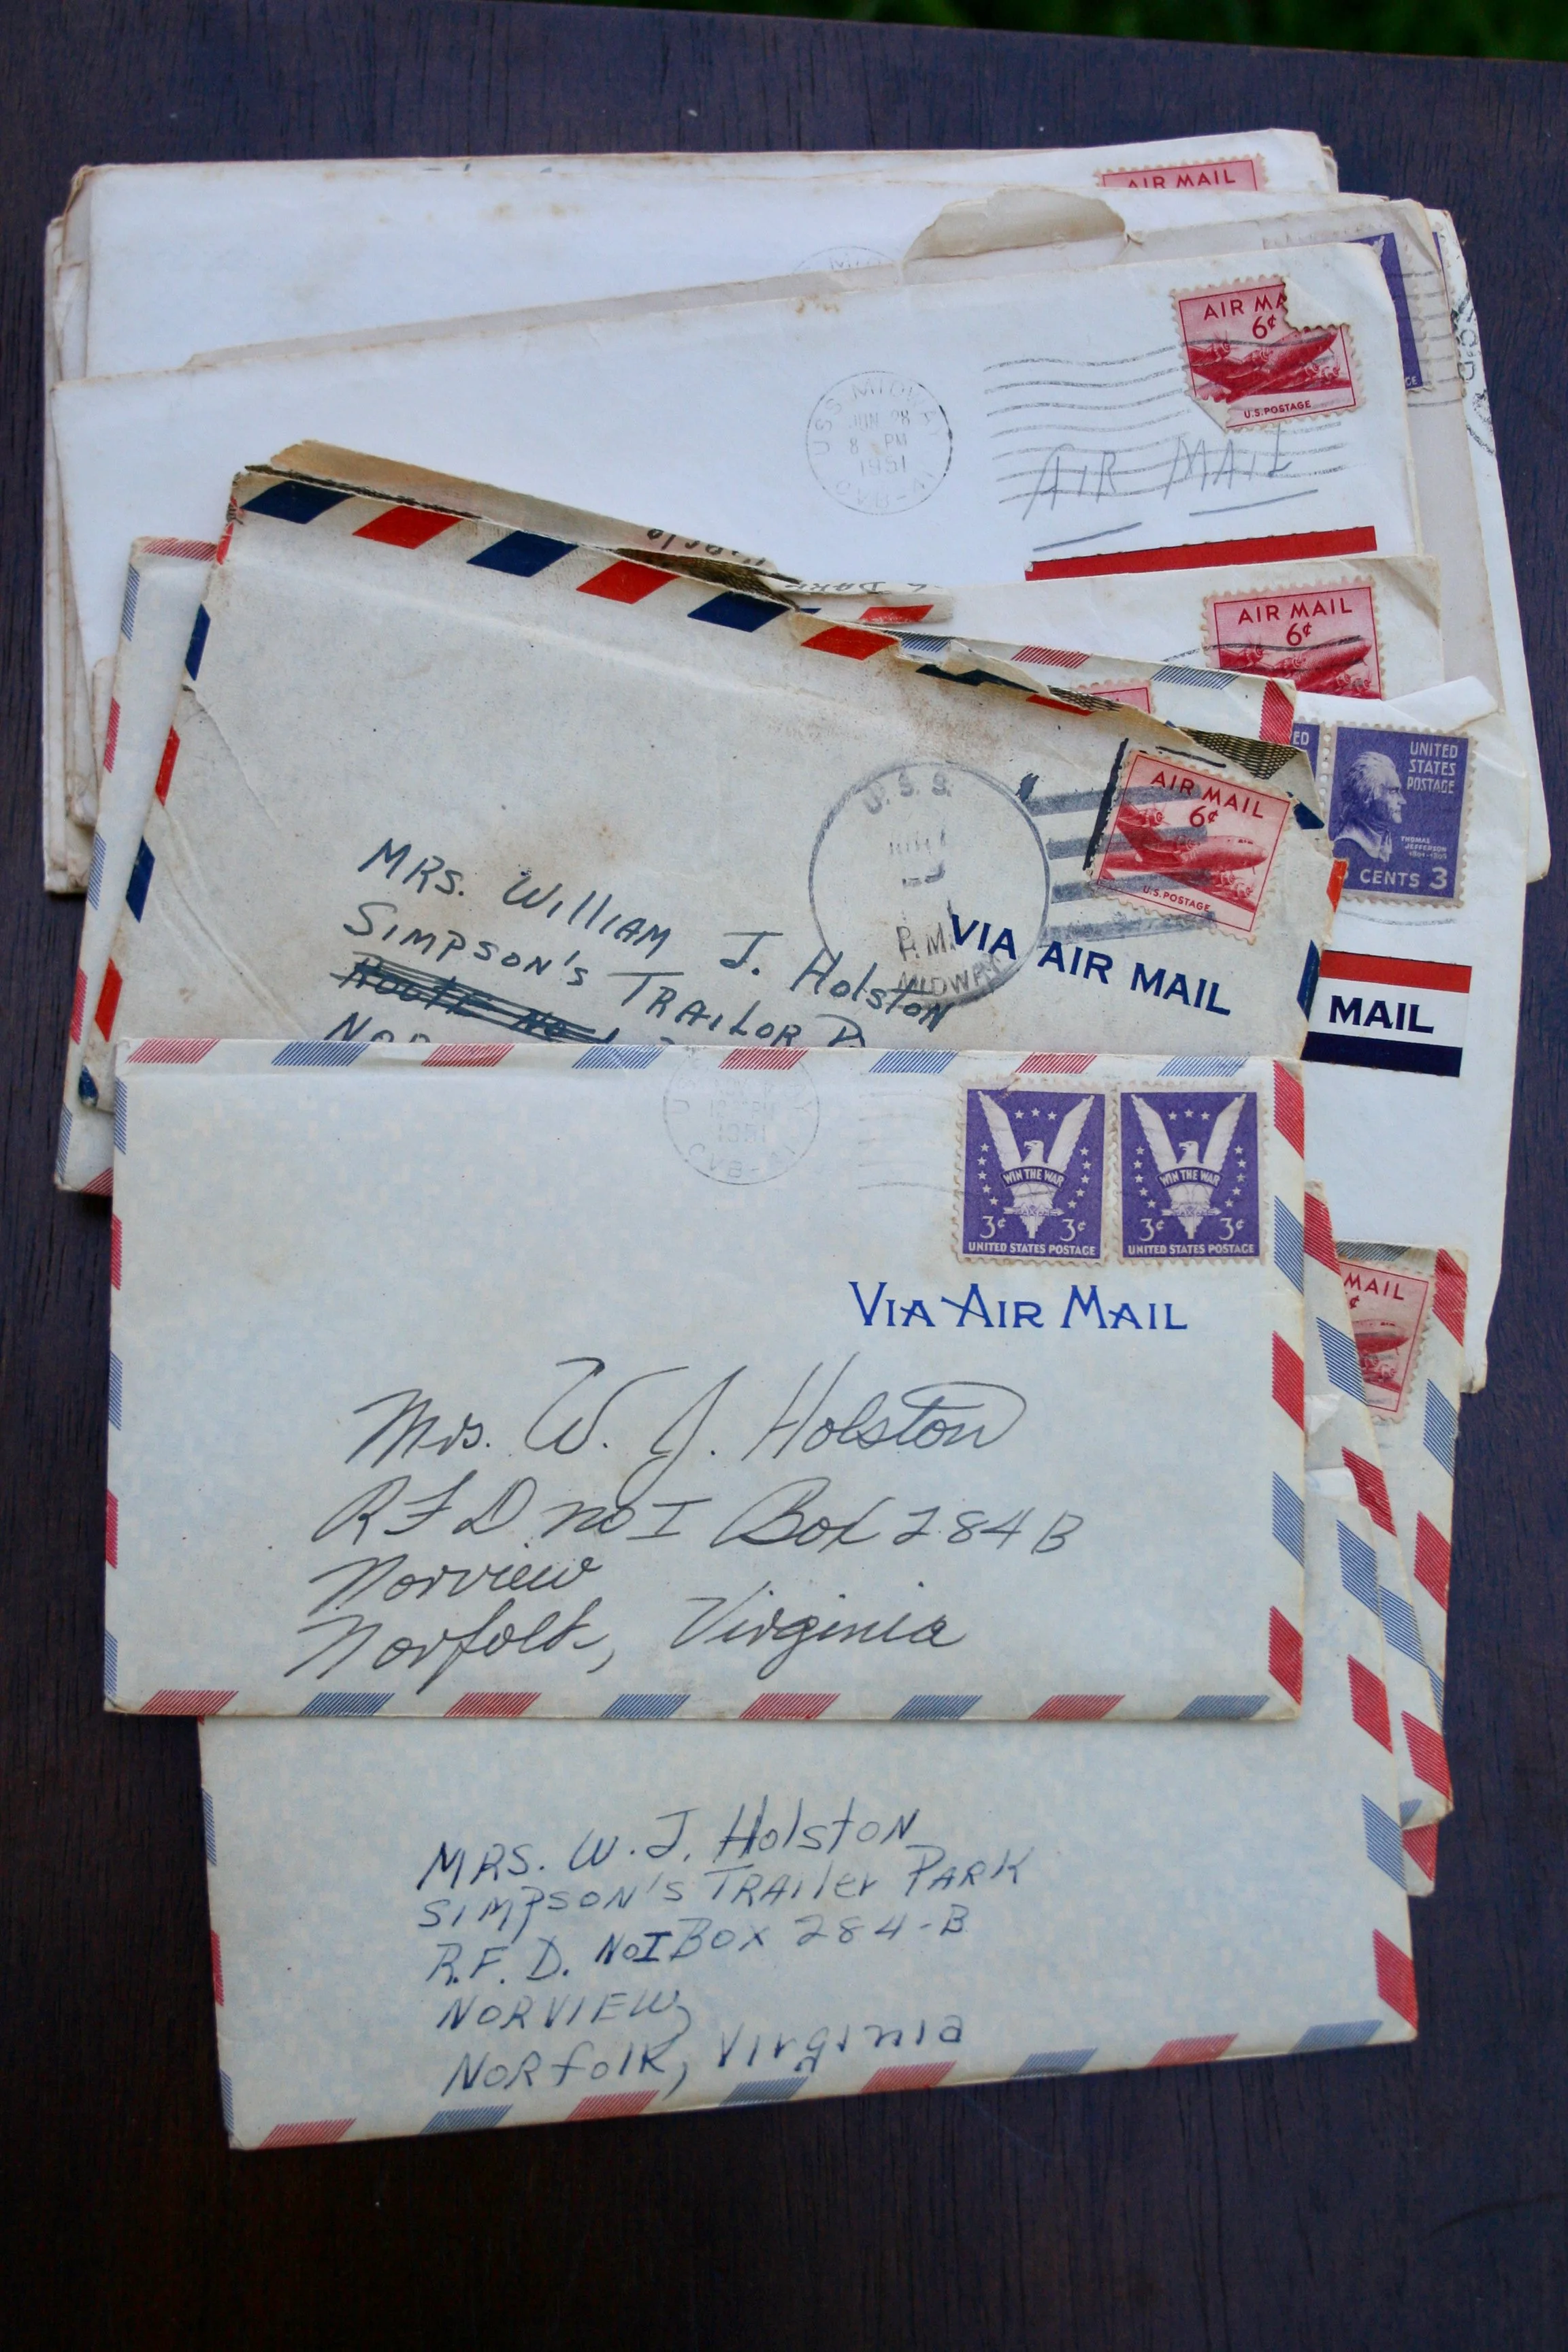 AIR MAIL
AIR MA
6¢
U.S. POSTAGE
USS MIDWAY
JUN 28
8 PM
1951
CVB-41
AIR MAIL
AIR MAIL
6¢
UNITED
STATES
POSTAGE
THOMAS
JEFFERSON
CENTS 3
AIR MAIL
6¢
U.S. POSTAGE
U.S.S.
P.M.
MIDWAY
VIA AIR MAIL
MAIL
MRS. William J. Holston
SIMPSON'S TRAILOR P
Route No 1
NOR
WIN THE WAR
3¢ 3¢
UNITED STATES POSTAGE
WIN THE WAR
3¢ 3¢
UNITED STATES POSTAGE
VIA AIR MAIL
MAIL
¢
Mrs. W. J. Holston
RFD no I Box 284B
Norview
Norfolk, Virginia
MRS. W. J. Holston
SIMPSON'S TRAILER PARK
R.F.D. No I BOX 284-B
NORVIEW,
NORfolk, Virginia